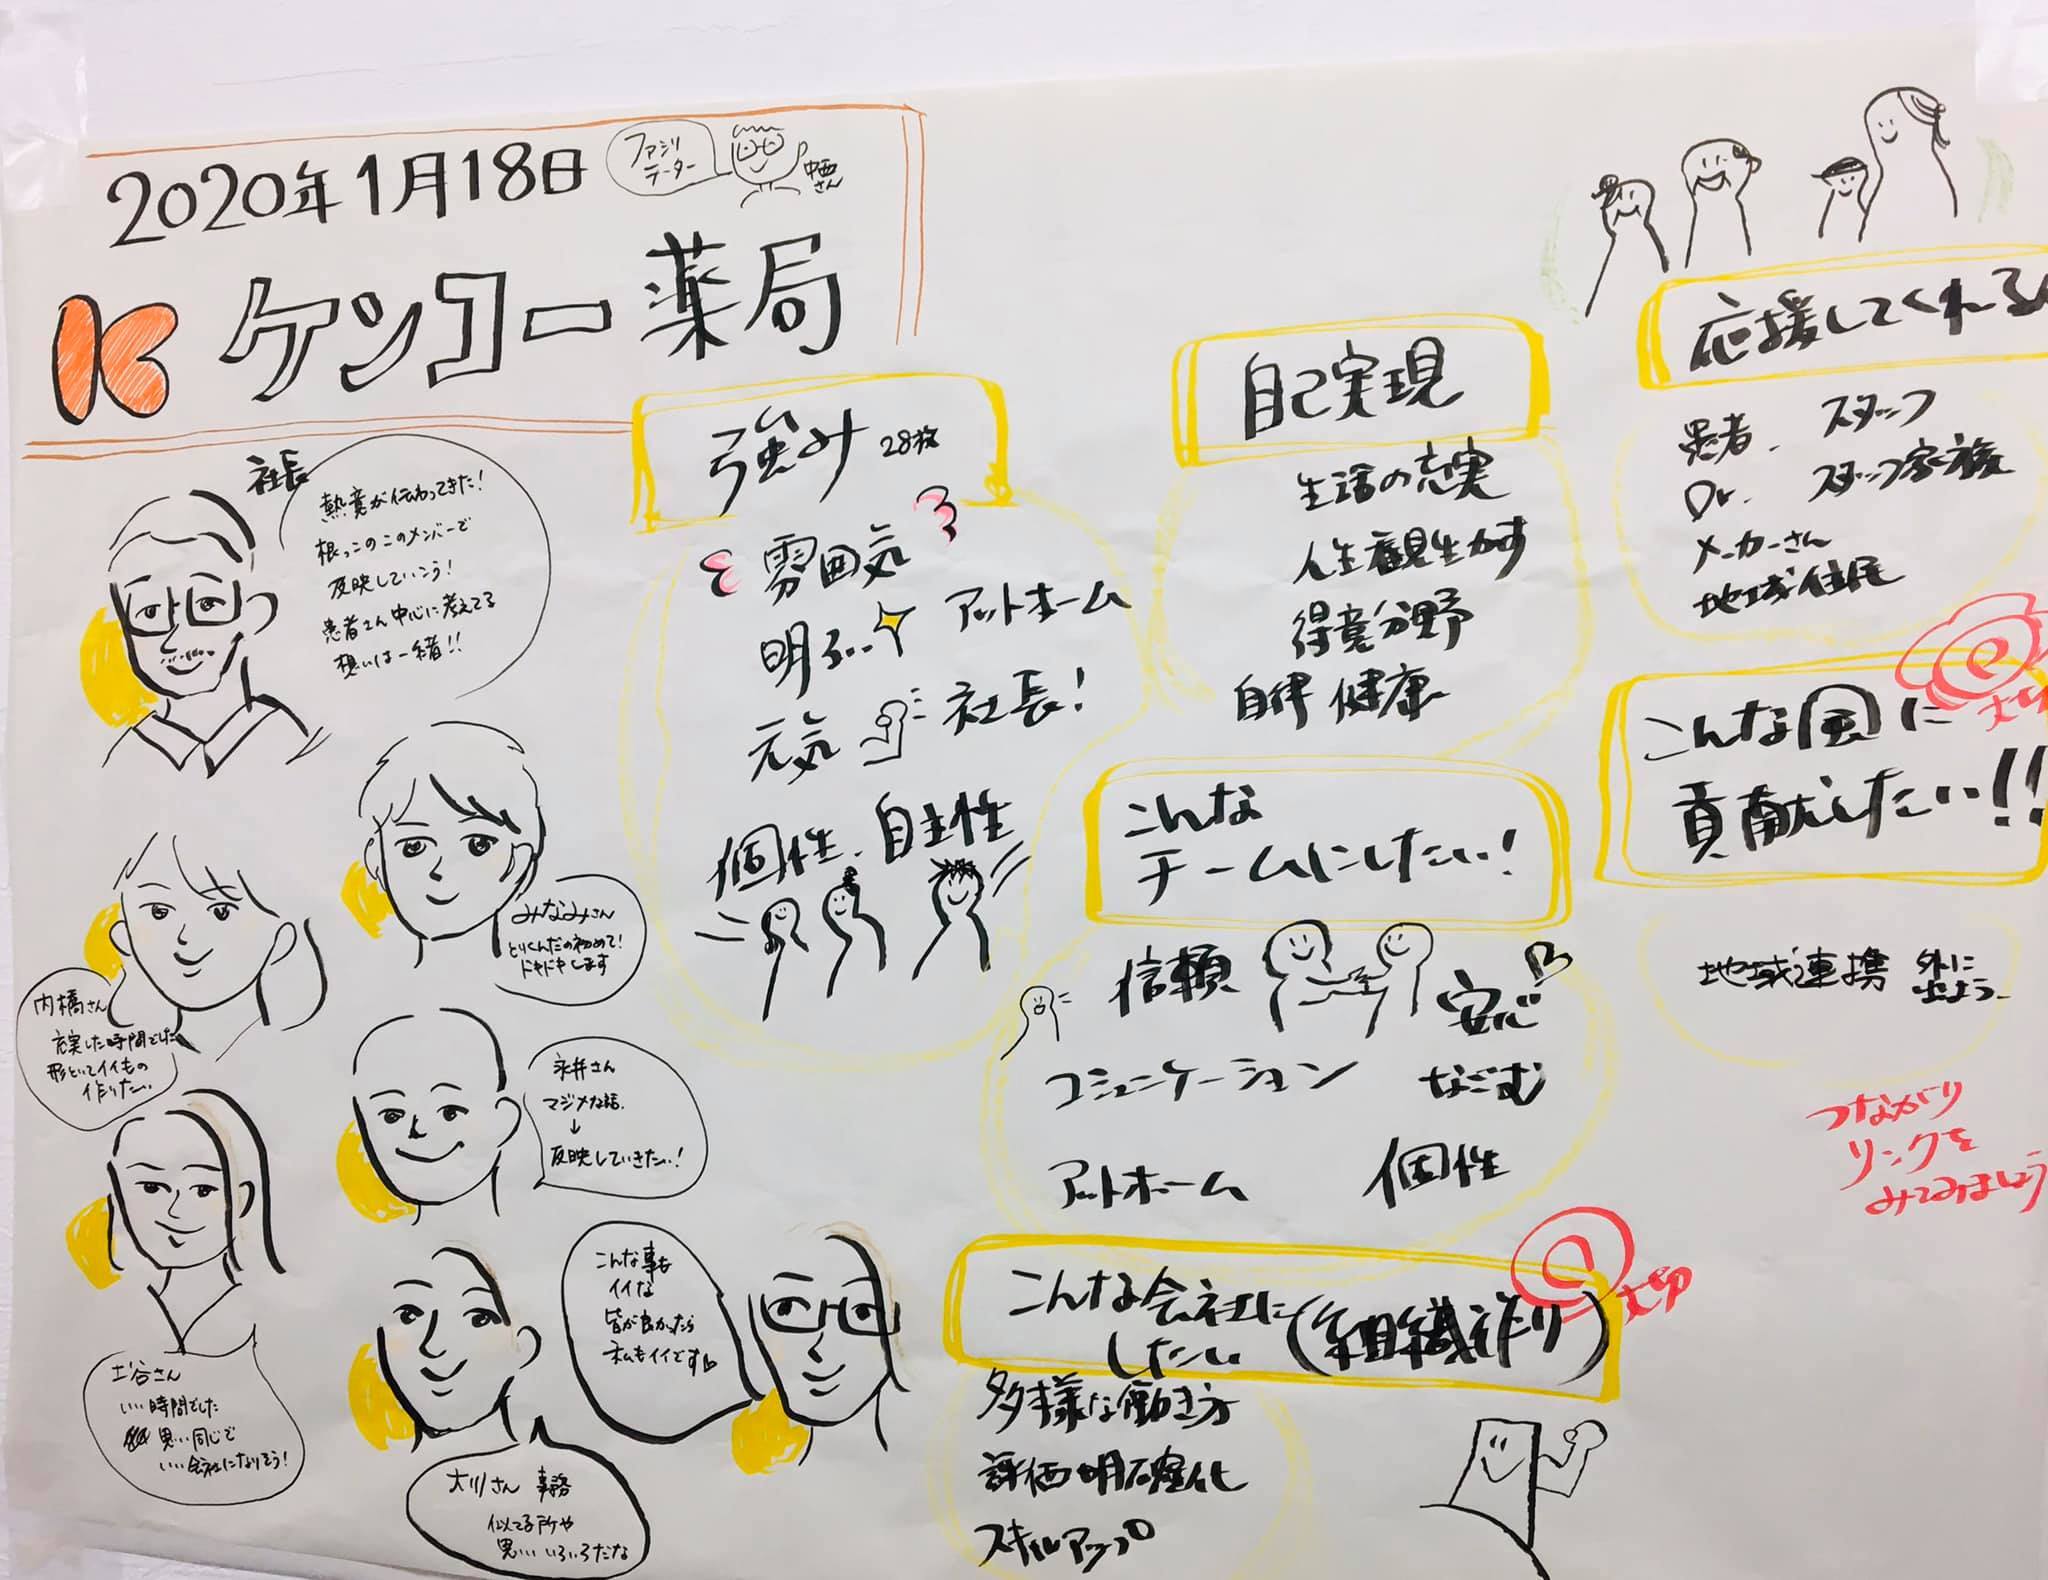 2020年1月18日
ファシリ
テーター
中西
さん
K ケンコー薬局
社長
熱意が伝わってきた!
根っこのこのメンバーで
反映していこう!
患者さん中心に考えてる
想いは一緒!!
みなみさん
とりくんだの初めて!
ドキドキします
内橋さん
充実した時間でした
形としてイイもの
作りたい
永井さん
マジメな話、
↓
反映していきたい!
土谷さん
いい時間でした
思い同じで
いい会社になりそう!
大川さん 事務
似てる所や
思い いろいろだな
こんな事も
イイな
皆が良かったら
私もイイです
強み 28枚
雰囲気
明るい アットホーム
元気 社長!
個性、自主性
自己実現
生活の充実
人生観生かす
得意分野
自律 健康
応援してくれる
患者、スタッフ
Dr. スタッフ家族
メーカーさん
地域住民
こんなチームにしたい!
信頼 安心
コミュニケーション なごむ
アットホーム 個性
こんな風に
大切
貢献したい!!
地域連携 外に
出よう、
つながり
リンクを
みてみましょう
こんな会社に
したい (組織作り)
大切
多様な働き方
評価明確化
スキルアップ